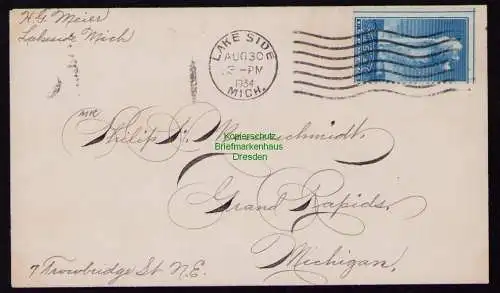 H.G. Meier
Lakeside Mich
LAKE SIDE
AUG 30
3-PM
1934
MICH.
Mr
Philip H. Messerschmidt.
Kopierschutz
Briefmarkenhaus
Dresden
Grand Rapids.
Michigan.
7 Trowbridge St N.E.